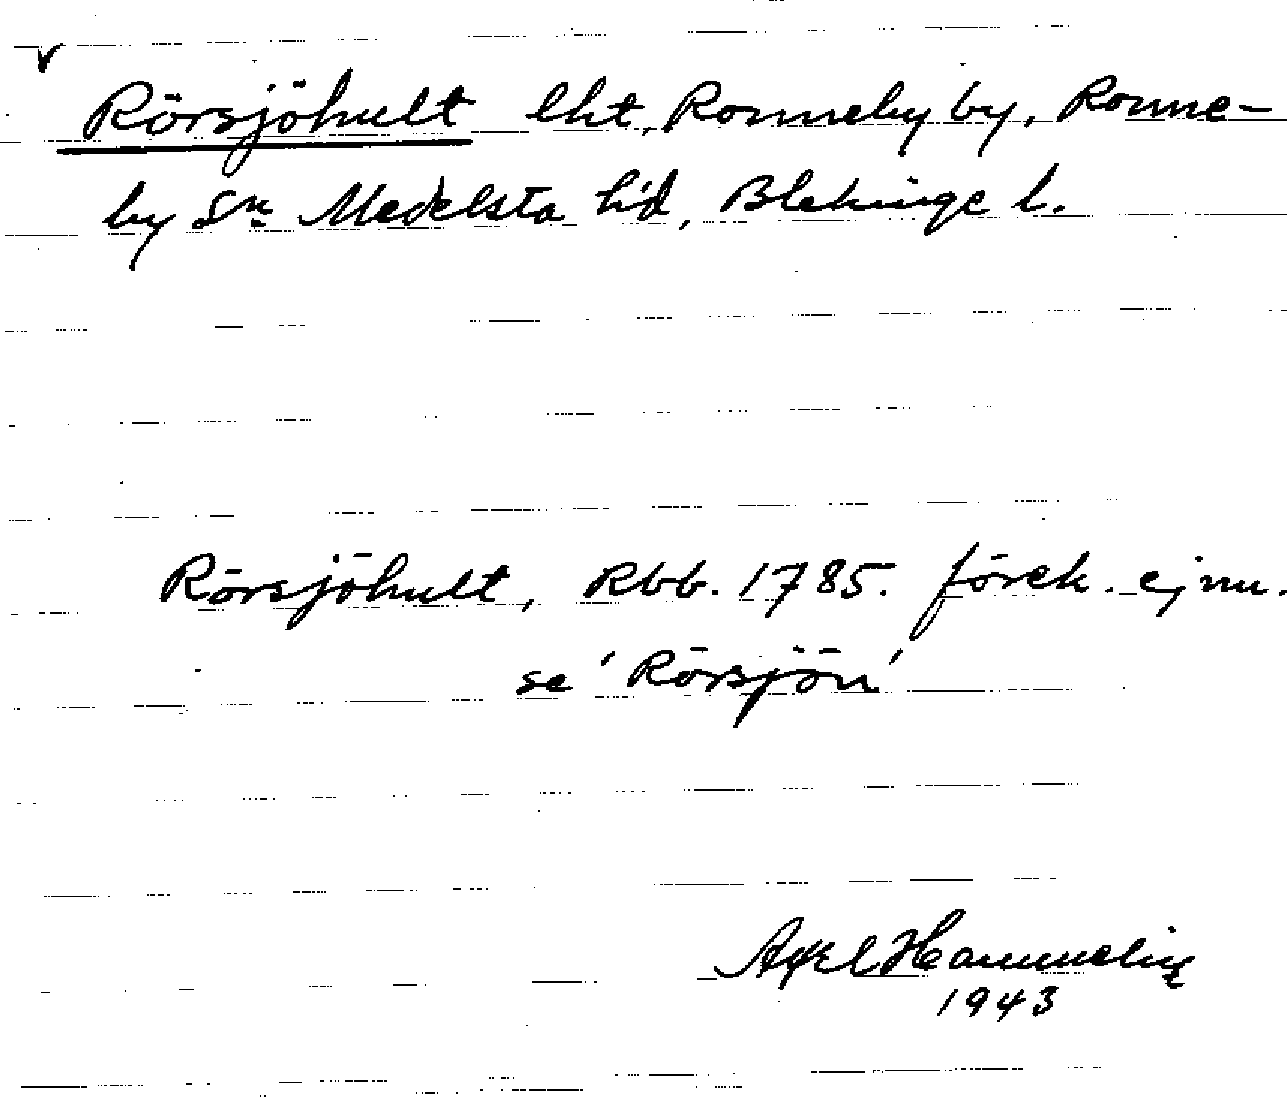 Rörsjöhult lht, Ronneby by, Ronne-
by Sn Medelsta hd, Blekinge l.
Rörsjöhult, Rbb. 1785. förek. ej nu.
se 'Rörsjön'
Axel Hammelin
1943